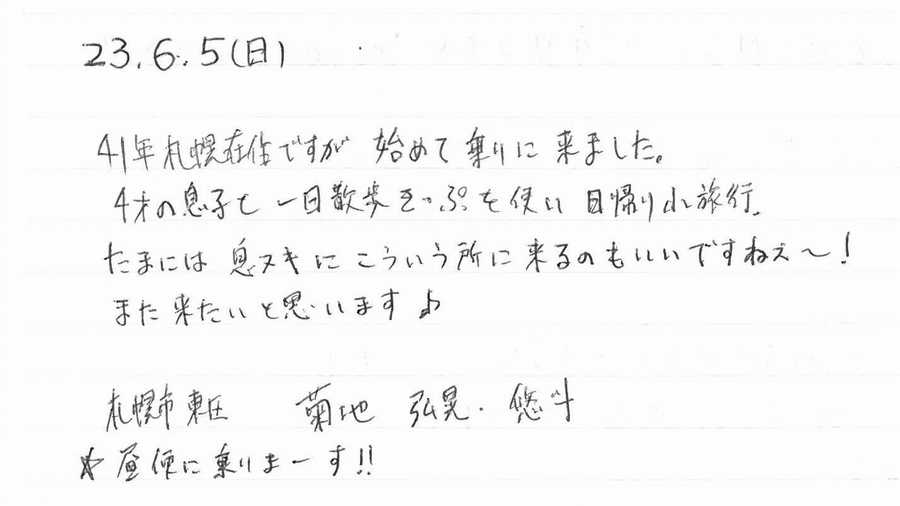 23.6.5(日)
41年札幌在住ですが 始めて乗りに来ました。
4才の息子と一日散歩きっぷを使い日帰り小旅行。
たまには息ヌキにこういう所に来るのもいいですねえ～!
また来たいと思います♪
札幌市東区 菊地 弘晃・悠斗
☆昼便に乗りまーす!!